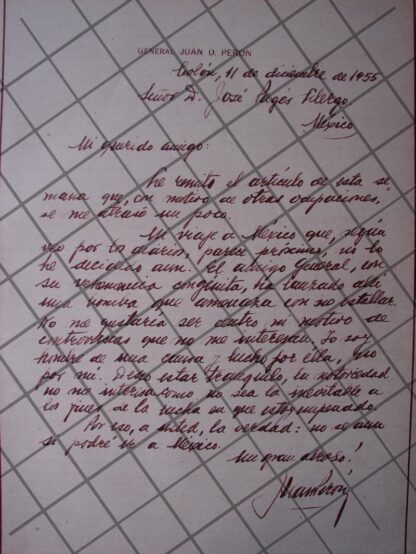 GENERAL JUAN D. PERON
Colón, 11 de diciembre de 1955
Señor D. José Pagés Llergo
México
Mi querido amigo:
Le remito el artículo de esta se
mana que, con motivo de otras ocupaciones,
se me atrasó un poco.
Mi viaje a México que, según
veo por los diarios, parece próximo, no lo
he decidido aun. El amigo con
su vehemencia congénita, ha lanzado allí
una bomba que amenaza con no estallar.
No me gustaría ser centro, ni motivo de
controversias que no me interesan. Yo soy
hombre de una causa y lucho por ella, no
por mí. Deseo estar tranquilo, la notoriedad
no me interesa como no sea la inevitable a
los fines de la lucha en que estoy empeñado.
Por eso, a usted, la verdad: no se aun
si podré ir a México.
Un gran abrazo!
Juan Perón